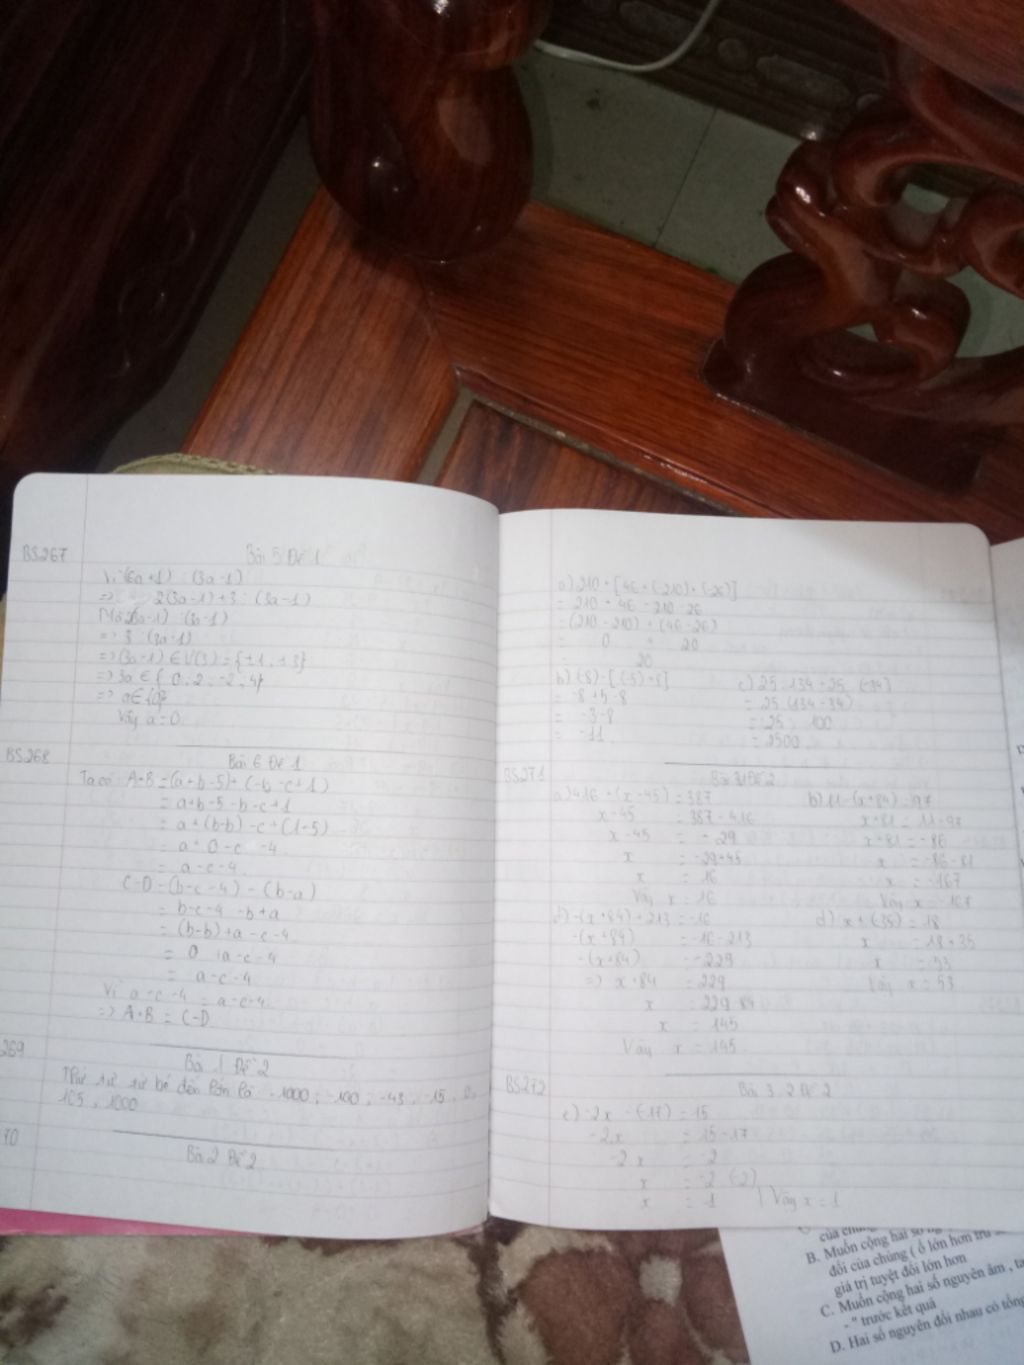 BS267 Bài 5 Đề 1
Vì (6a+1) ⋮ (3a-1)
=> 2(3a-1)+3 ⋮ (3a-1)
(3a-1) ⋮ (3a-1)
=> 3 ⋮ (3a-1)
=> (3a-1) ∈ Ư(3) = {±1; ±3}
=> 3a ∈ {0; 2; -2; 4}
=> a ∈ {0}
Vậy a=0
BS268 Bài 6 Đề 1
Ta có: A+B = (a+b-5)+(-b-c+1)
= a+b-5-b-c+1
= a+(b-b)-c+(1-5)
= a+0-c-4
= a-c-4
C-D = (b-c-4)-(b-a)
= b-c-4-b+a
= (b-b)+a-c-4
= 0+a-c-4
= a-c-4
Vì a-c-4 = a-c-4
=> A+B = C-D
269 Bài 1 Đề 2
Thứ tự từ bé đến lớn là: -1000; -100; -43; -15; 0;
105; 1000
70 Bài 2 Đề 2
a) 210+[46+(-210)+(-26)]
= 210+46-210-26
= (210-210)+(46-26)
= 0 + 20
= 20
b) (-8)-[(-5)+8] c) 25.134+25.(-34)
= -8+5-8 = 25.(134-34)
= -3-8 = 25.100
= -11 = 2500
BS271 Bài 3.1 Đề 2
a) 416+(x-45) = 387 b) 11-(x+84) = 97
x-45 = 387-416 x+81 = 11-97
x-45 = -29 x+81 = -86
x = -29+45 x = -86-81
x = 16 x = -167
Vậy x = 16 Vậy x = -167
-(x+84)+213 = -16 d) x+(-35) = 18
-(x+84) = -16-213 x = 18+35
-(x+84) = -229 x = 53
=> x+84 = 229 Vậy x = 53
x = 229-84
x = 145
Vậy x = 145
BS272 Bài 3.2 Đề 2
e) -2x-(-17) = 15
-2x = 15-17
-2x = -2
x = -2:(-2)
x = 1 Vậy x = 1
của chúng
B. Muốn cộng hai số
đối của chúng ( ố lớn hơn trừ
giá trị tuyệt đối lớn hơn
C. Muốn cộng hai số nguyên âm , ta
- " trước kết quả
D. Hai số nguyên đối nhau có tổng